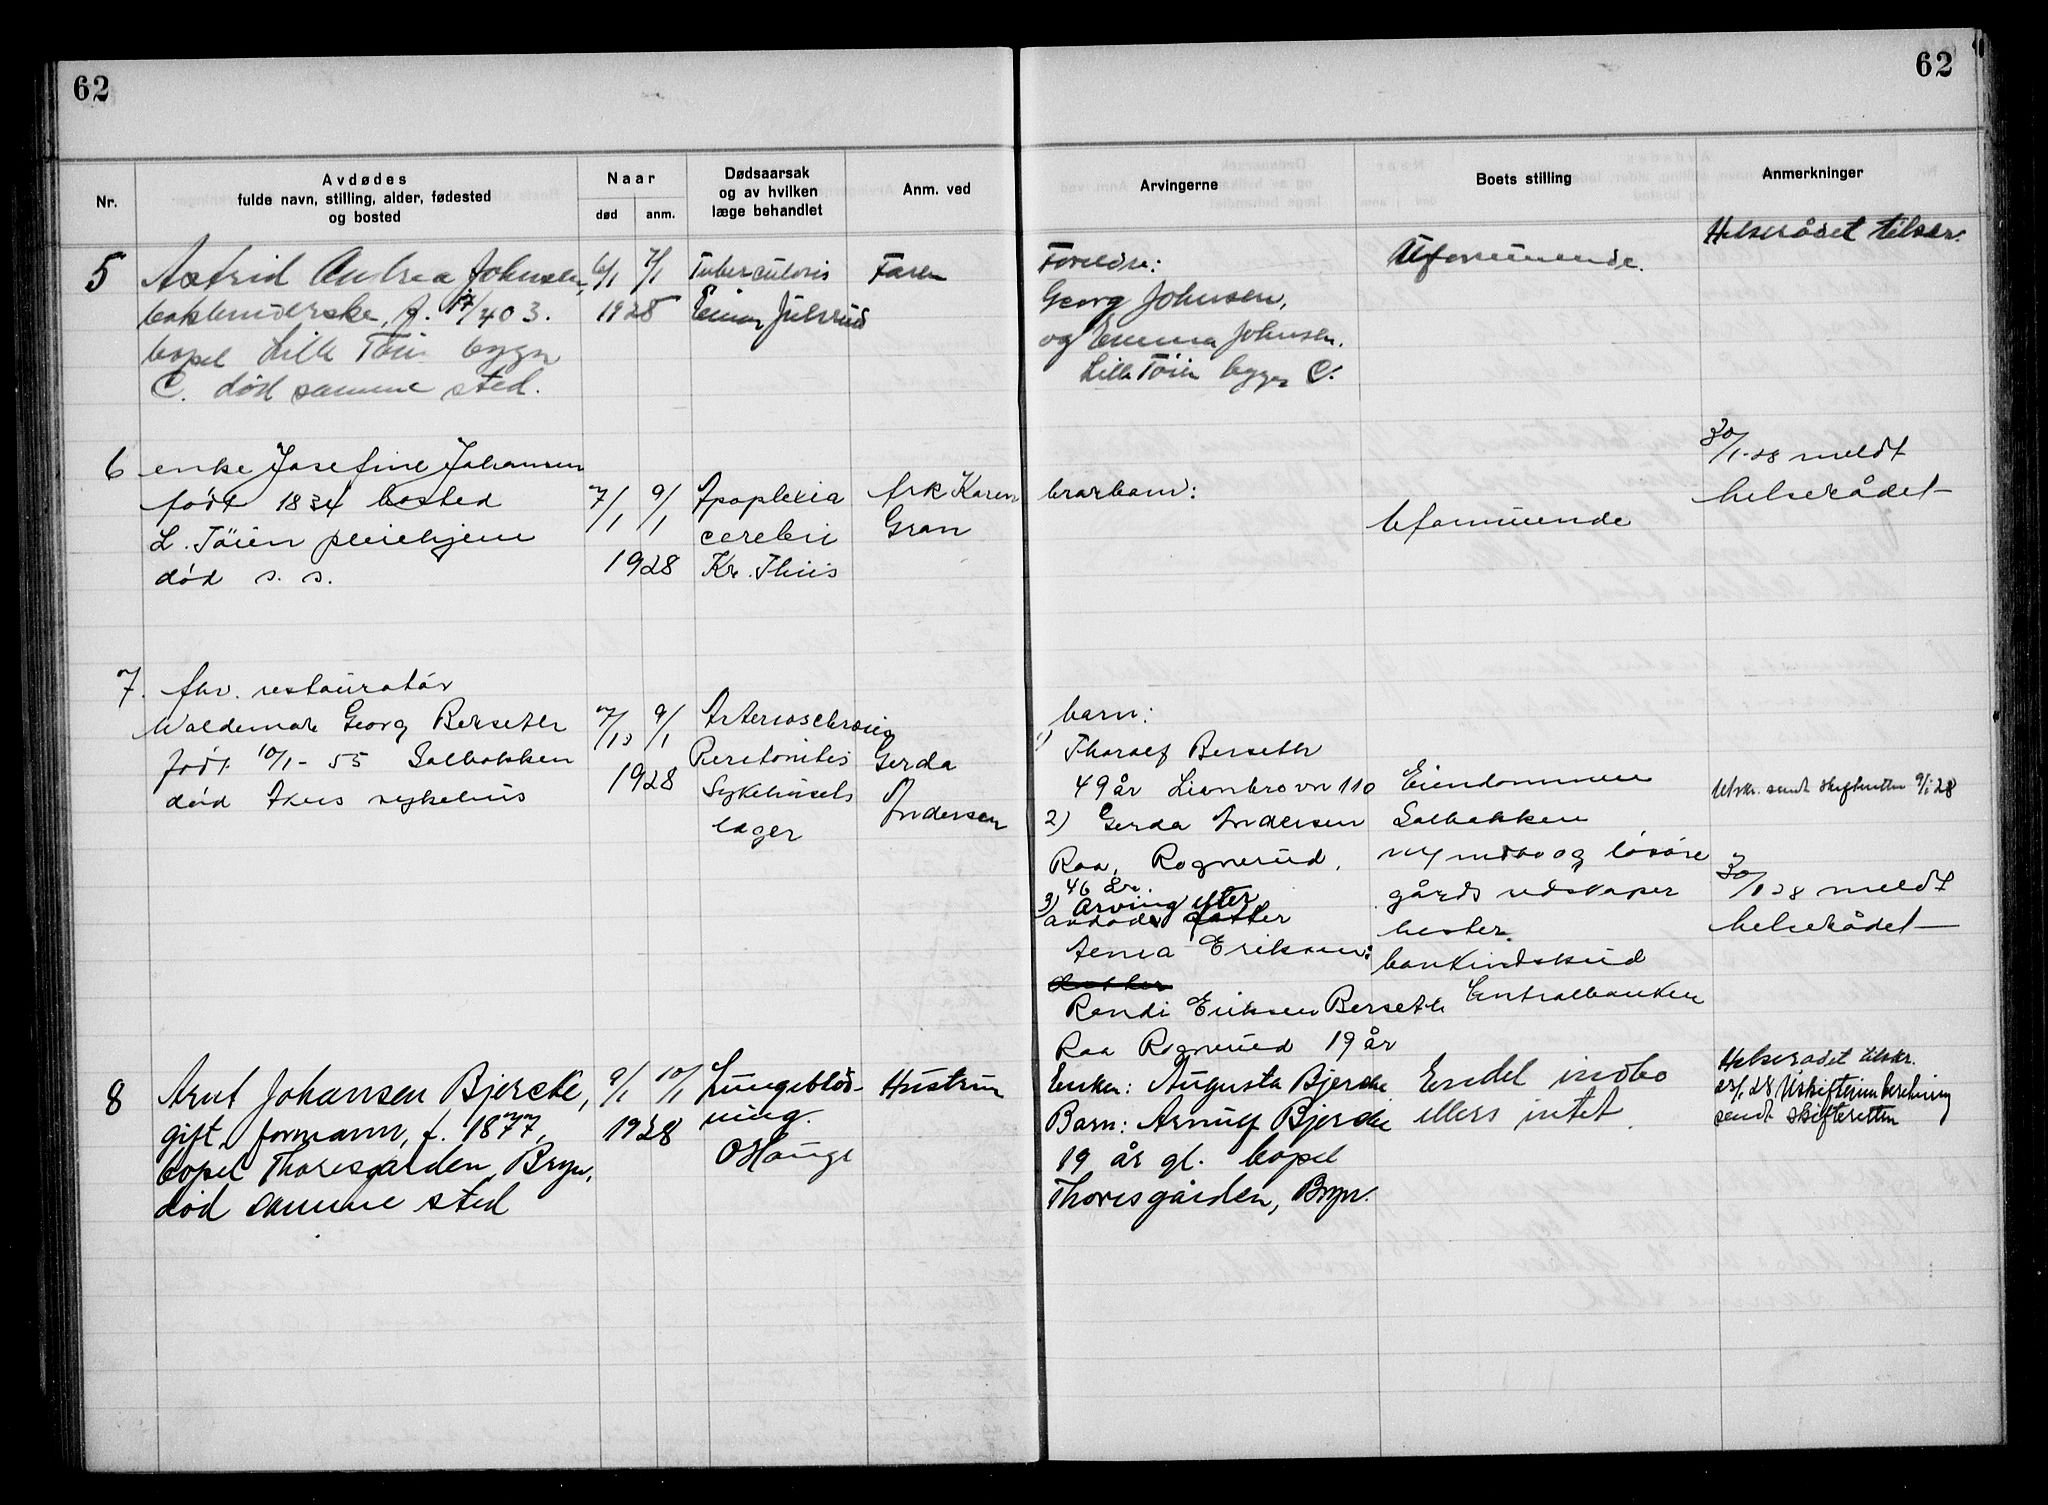 62
62
Nr.
Avdødes
fulde navn, stilling, alder, fødested
og bosted
Naar
død
anm.
Dødsaarsak
og av hvilken
læge behandlet
Anm. ved
Arvingerne
Boets stilling
Anmerkninger
5
Astrid Andrea Johnsen,
bokbinderske, f. 17/4 03.
bopel Lille Tøien bygn
C. død samme sted.
6/1 7/1
1928
Tuberculosis
Einar Julsrud
Faren
Foreldre:
Georg Johnsen,
og Emma Johnsen.
Lille Tøien bygn C.
Uformuende.
Helserådet tilskr.
6
enke Josefine Johansen
født 1834 bosted
L. Tøien pleiehjem
død s. s.
7/1 9/1
1928
Apoplexia
cerebri
Kr. Thiis
frk Karen
Gran
brorbarn:
Uformuende
30/1-28 meldt
helserådet
7.
fhv. restauratør
Waldemar Georg Berseth
født 10/1-55 Solbakken
død Akers sykehus
7/1 9/1
1928
Arteriosclerosis
Peritonitis
Sykehusets
læger
Gerda
Andersen
barn:
1) Thoralf Berseth
49 år Lianbrovn 110
2) Gerda Andersen
Roa, Rognerud.
46 år.
3) Arving efter
avdøde datter
Anna Eriksen:
Randi Eriksen Berseth
Roa Rognerud 19 år
Eiendommen
Solbakken
m/ indbo og løsøre
gårds redskaper
hester.
bankindskud
Centralbanken
Utskr. sendt skifteretten 9/1 28
30/1 28 meldt
helserådet
8
Arnt Johansen Bjercke,
gift, formann, f. 1877,
bopel Thoresgården, Bryn,
død samme sted
9/1 10/1
1928
Lungeblød-
ning.
O Hauge
Hustrun
Enken: Augusta Bjercke
Barn: Arnulf Bjercke
19 år gl. bopel
Thoresgården, Bryn.
Endel indbo
ellers intet.
Helserådet tilskr.
28 Uskifteinnberetning
sendt skifteretten